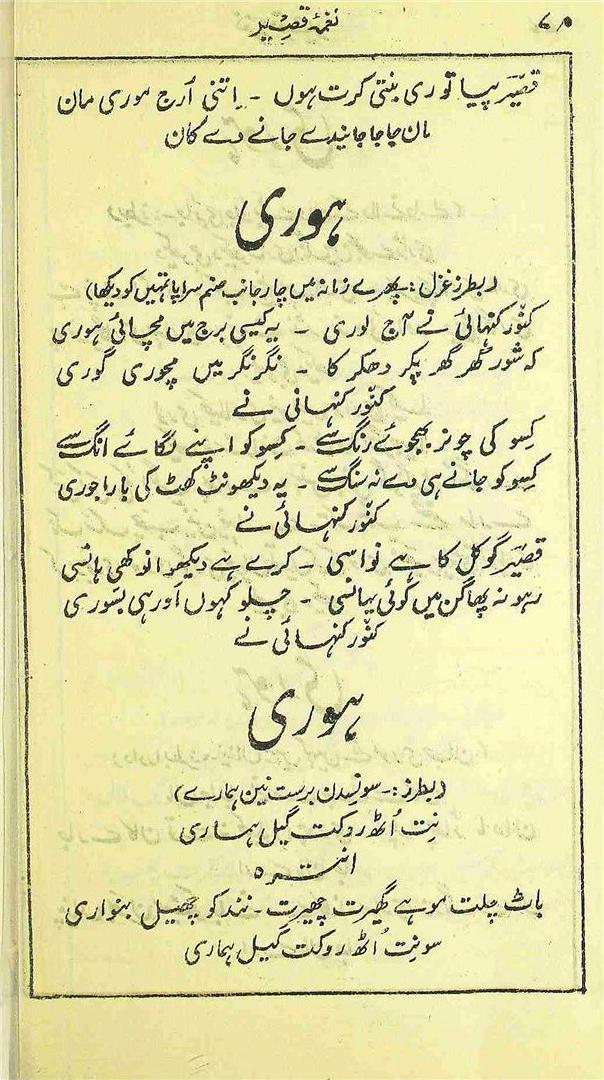 ۷۸ نغمۂ قصیر
قصیؔر پیا توری بنتی کرت ہوں ۔ اِتنی اُرج موری مان
مان جا جا جانیدے جانے دے کان
ہوری
(بطرز غزل :۔ پھرے زمانہ میں چار جانب صنم سراپا تمہیں کو دیکھا)
کنوّر کنہائی نے آج لوری ۔ یہ کیسی برج میں مچائی ہوری
کہ شور گھر گھر پکر دھکر کا ۔ نگر نگر میں مچوری گوری
کنوّر کنہائی نے
کِسو کی چونر بھجوئے رنگ سے ۔ کِسو کو اپنے لگائے انگ سے
کِسو کو جانے ہی دے نہ سنگ سے ۔ یہ دیکھو نٹ کھٹ کی باراجوری
کنوّر کنہائی نے
قصیؔر گوکل کا ہے نواسی ۔ کرے ہے دیکھو انوکھی ہانسی
رہو نہ پھاگن میں کوئی یہانسی ۔ چلو کہوں اَور ہی بسوری
کنوّر کنہائی نے
ہوری
(بطرز :۔ سونسدن برست نین ہمارے)
نِت اُٹھ روکت گیل ہماری
انترہ
باٹ چلت موہے گھیرت چھیرت ۔ نند کو چھیل بنواری
سو نِت اُٹھ روکت گیل ہماری